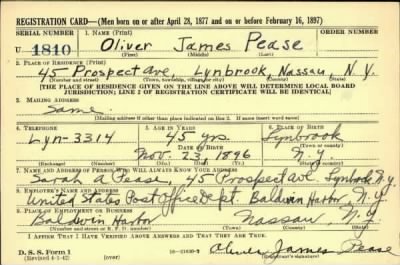 REGISTRATION CARD—(Men born on or after April 28, 1877 and on or before February 16, 1897)
SERIAL NUMBER 1. NAME (Print) ORDER NUMBER
U 1810 Oliver James Pease
(First) (Middle) (Last)
2. PLACE OF RESIDENCE (Print)
45 Prospect Ave. Lynbrook, Nassau, N.Y.
(Number and street) (Town, township, village, or city) (County) (State)
[THE PLACE OF RESIDENCE GIVEN ON THE LINE ABOVE WILL DETERMINE LOCAL BOARD
JURISDICTION; LINE 2 OF REGISTRATION CERTIFICATE WILL BE IDENTICAL]
3. MAILING ADDRESS
Same.
[Mailing address if other than place indicated on line 2. If same insert word same]
4. TELEPHONE 5. AGE IN YEARS 6. PLACE OF BIRTH
Lyn-3314 45 yrs. Lynbrook
DATE OF BIRTH (Town or county)
Nov. 23, 1896 N.Y.
(Exchange) (Number) (Mo.) (Day) (Yr.) (State or country)
7. NAME AND ADDRESS OF PERSON WHO WILL ALWAYS KNOW YOUR ADDRESS
Sarah Pease, 45 Prospect Ave. Lynbrook N.Y.
8. EMPLOYER'S NAME AND ADDRESS
United States Post Office Dept. Baldwin Harbor, N.Y.
9. PLACE OF EMPLOYMENT OR BUSINESS
Baldwin Harbor Nassau, N.Y.
(Number and street or R. F. D. number) (Town) (County) (State)
I AFFIRM THAT I HAVE VERIFIED ABOVE ANSWERS AND THAT THEY ARE TRUE.
D. S. S. Form 1
(Revised 4-1-42) (over) Oliver James Pease